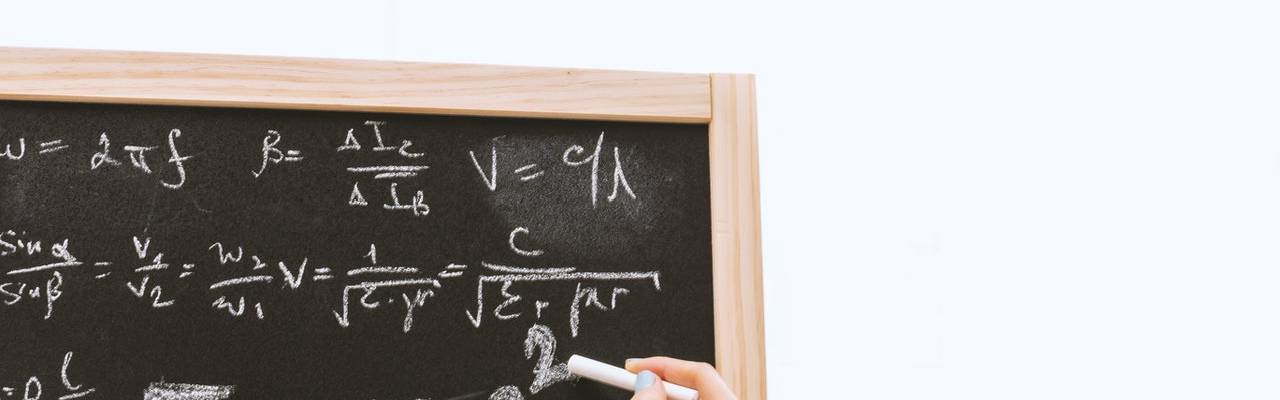 ω = 2πf β = ΔI_C / ΔI_B V = c/λ
sin α / sin β = V_1 / V_2 = n_2 / n_1 V = 1 / √(ε · μ) = c / √(ε_r μ_r)
2